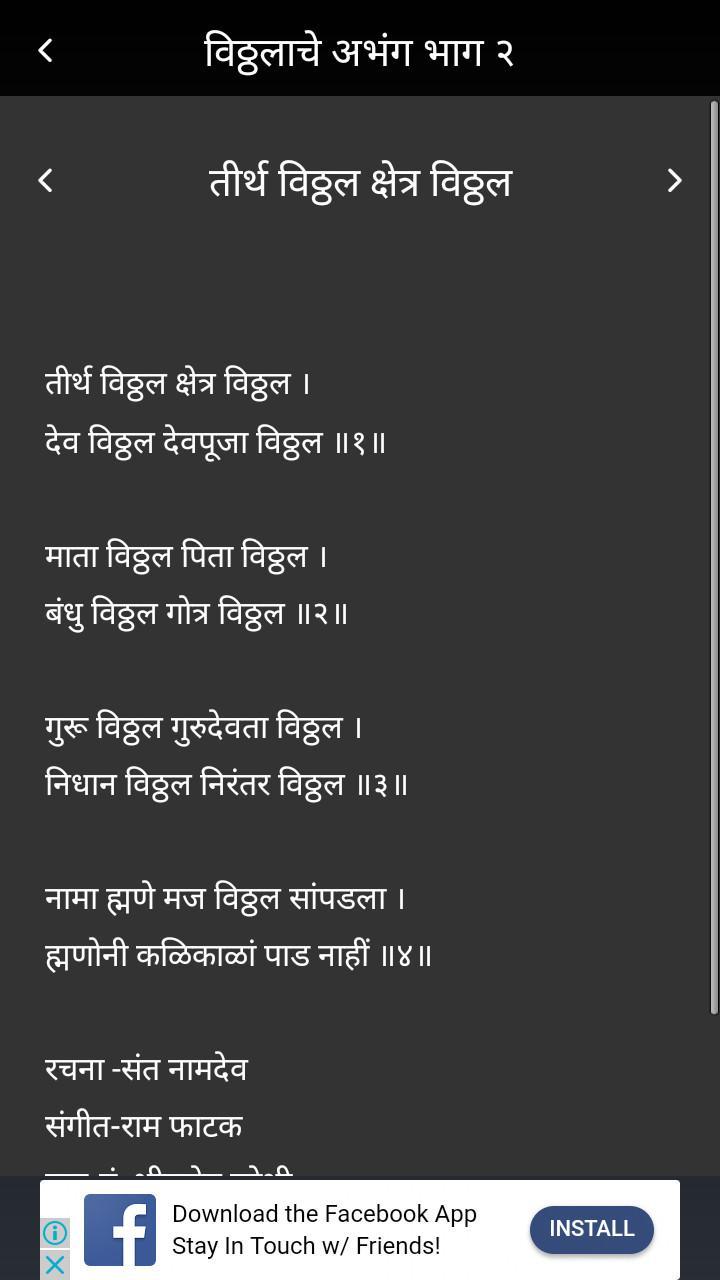 विठ्ठलाचे अभंग भाग २
तीर्थ विठ्ठल क्षेत्र विठ्ठल
तीर्थ विठ्ठल क्षेत्र विठ्ठल ।
देव विठ्ठल देवपूजा विठ्ठल ॥१॥
माता विठ्ठल पिता विठ्ठल ।
बंधु विठ्ठल गोत्र विठ्ठल ॥२॥
गुरू विठ्ठल गुरुदेवता विठ्ठल ।
निधान विठ्ठल निरंतर विठ्ठल ॥३॥
नामा ह्मणे मज विठ्ठल सांपडला ।
ह्मणोनी कळिकाळां पाड नाहीं ॥४॥
रचना -संत नामदेव
संगीत-राम फाटक
Download the Facebook App
Stay In Touch w/ Friends!
INSTALL